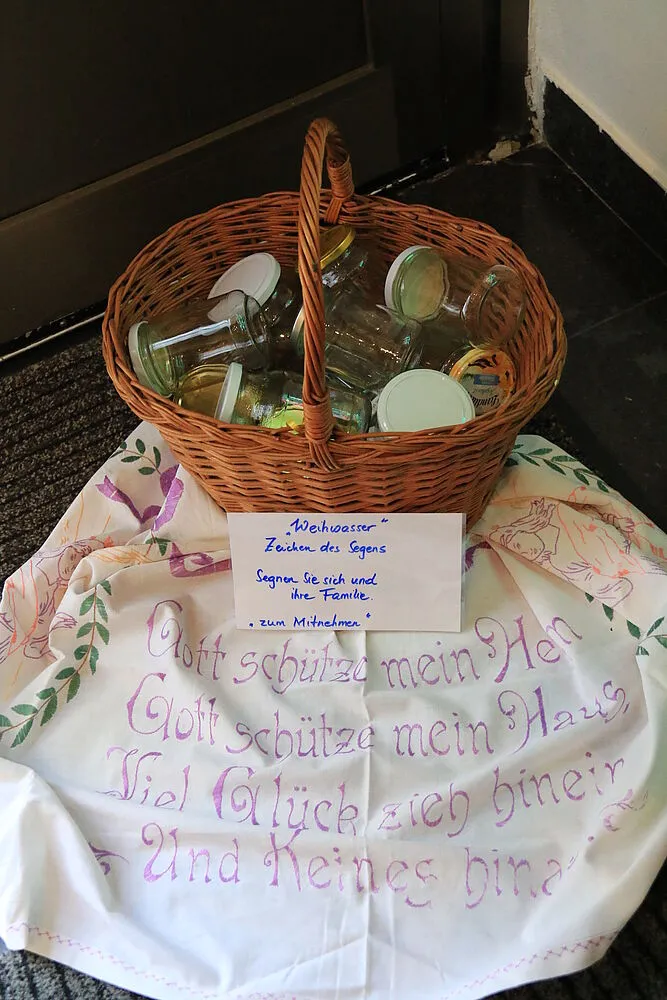 „Weihwasser"
Zeichen des Segens
Segnen Sie sich und
ihre Familie.
„zum Mitnehmen"
Gott schütze mein
Gott schütze mein Haus
Viel Glück zieh hinein
Und Keines